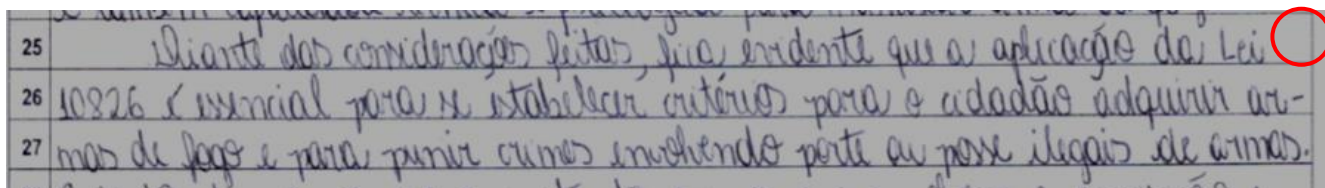 25 Diante das considerações feitas, fica evidente que a aplicação da Lei
26 10826 é essencial para se estabelecer critérios para o cidadão adquirir ar-
27 mas de fogo e para punir crimes envolvendo porte ou posse ilegais de armas.